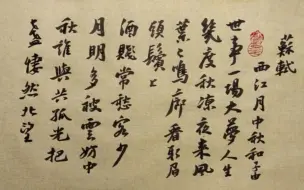 蘇軾
西江月中秋和子由
世事一場大夢人生
幾度秋涼夜來風
葉已鳴廊看取眉
頭鬢上
酒賤常愁客少
月明多被雲妨中
秋誰與共孤光把
盞悽然北望